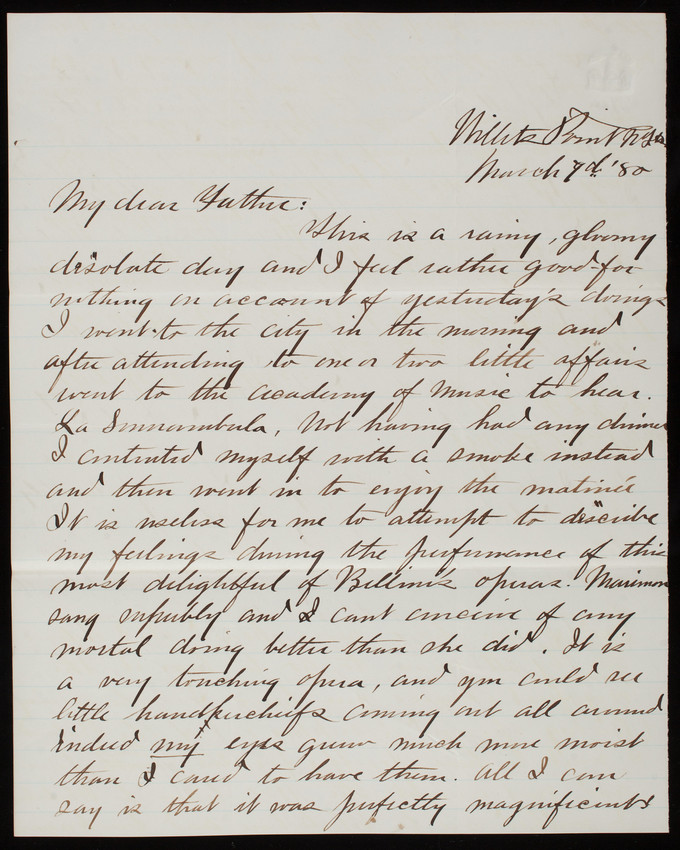 Willets Point N.Y.
March 7d. '80
My dear Father:
This is a rainy, gloomy
desolate day and I feel rather good-for-
nothing on account of yesterday's doings
I went to the city in the morning and
after attending to one or two little affairs
went to the academy of music to hear.
La Sonnambula, Not having had any dinner
I contented myself with a smoke instead
and then went in to enjoy the matinée
It is useless for me to attempt to describe
my feelings during the performance of this
most delightful of Bellini's operas. Marimon
sang superbly and I cant conceive of any
mortal doing better than she did. It is
a very touching opera, and you could see
little handkerchiefs coming out all around
indeed my eyes grew much more moist
than I cared to have them. All I can
say is that it was perfectly magnificent &